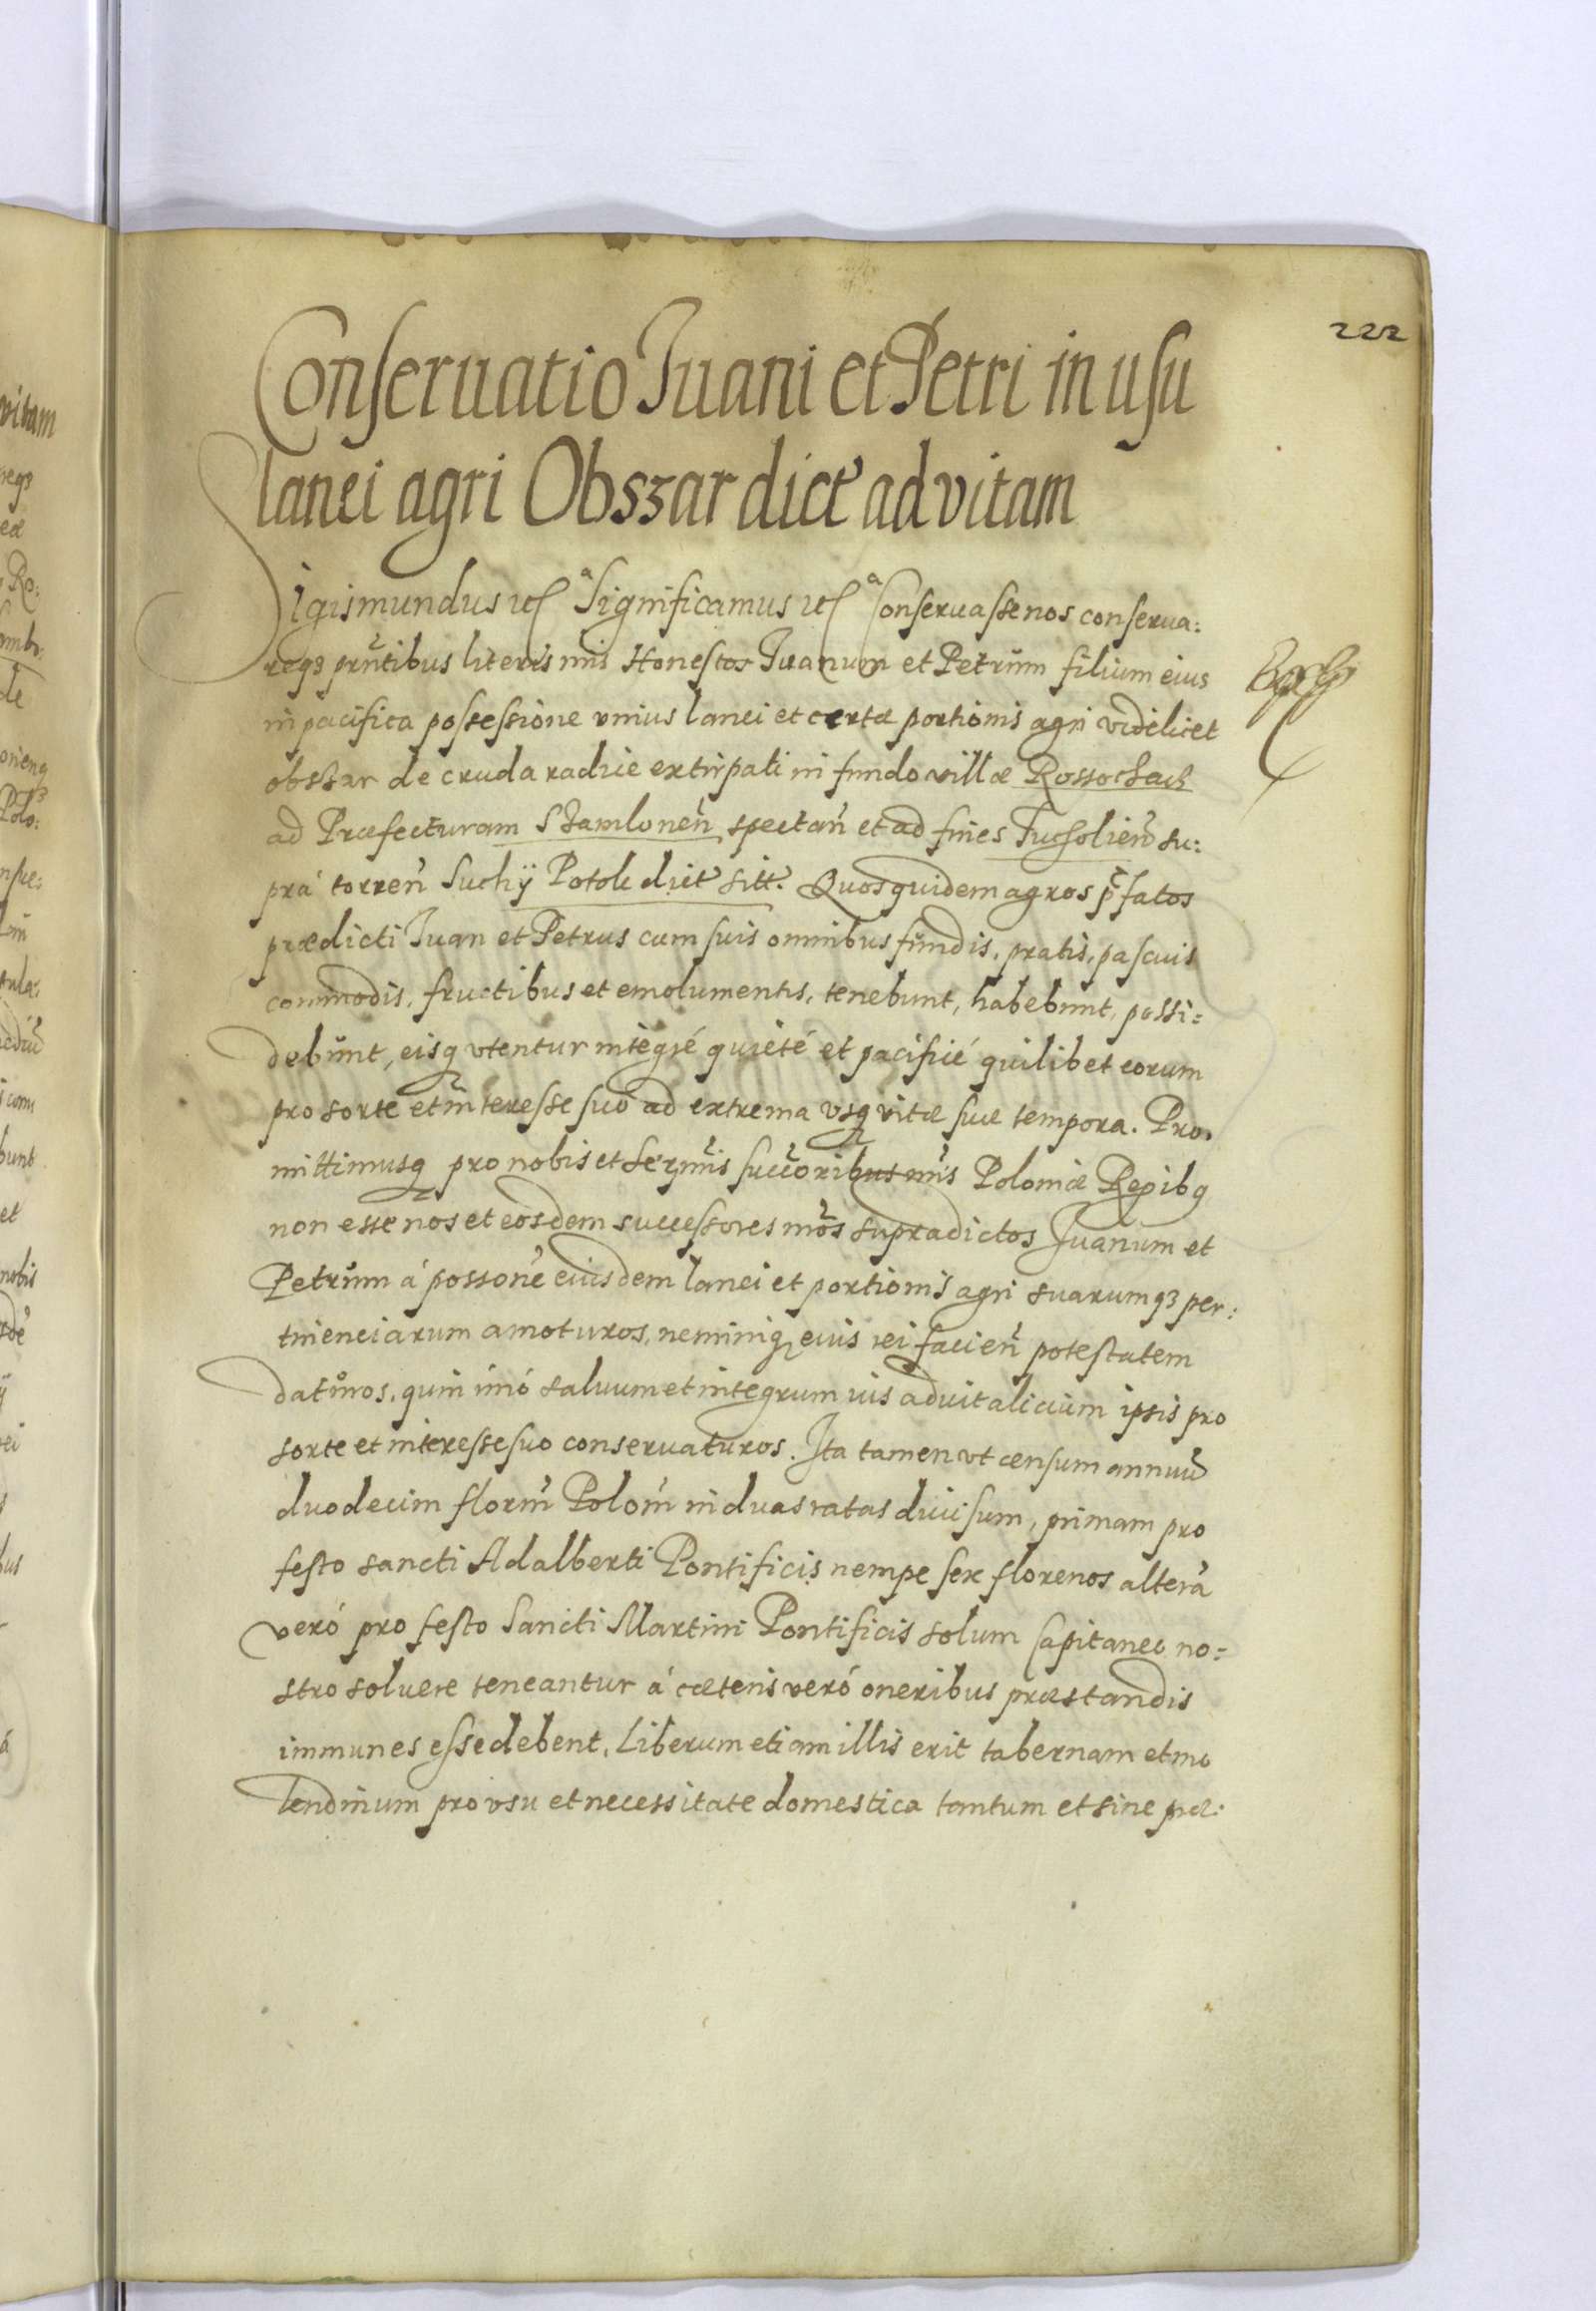 222
Conseruatio Juani et Petri in usu
lanei agri Obszar dict ad vitam
Sigismundus etc Significamus etc Conseruasse nos conserua:
reqз prn̄tibus literis nr̄is Honestos Juanum et Petrum filium eius
in pacifica possessione vnius lanei et certæ portionis agri videlicet
obszar de cruda radice extirpati in fundo villæ Rossochach
ad Præfecturam Stamlonen̄ spectan̄ et ad fines Tucholien̄ su:
prá torren̄ Suchÿ Potok dict sitt. Quos quidem agros p̄fatos
prædicti Juan et Petrus cum suis omnibus fundis, pratis, pascuis
commodis, fructibus et emolumentis, tenebunt, habebunt, possi:
debunt, eisq vtentur integré quieté et pacificé quilibet eorum
pro sorte et interesse suo ad extrema vsq vitæ suæ tempora. Pro:
mittimusq pro nobis et Serm̄is succ̄oribus nr̄is Poloniæ Regibq
non esse nos et eosdem successores nr̄os supradictos Juanum et
Petrum á posson̄e eiusdem lanei et portionis agri suarumqз per:
tinenciarum amoturos, neminiq eius rei facien̄ potestatem
daturos, quin imó saluum et integrum ius aduitalicium ipsis pro
sorte et interesse suo conseruaturos. Ita tamen vt censum annuū
duodecim floren̄ Polon̄ in duas ratas diuisum, primam pro
festo sancti Adalberti Pontificis nempe sex florenos alterā
veró pro festo Sancti Martini Pontificis solum Capitaneo no:
stro soluere teneantur á cæteris veró oneribus præstandis
immunes esse debent. Liberum etiam illis erit tabernam et mo
lendinum pro vsu et necessitate domestica tantum et sine præ: